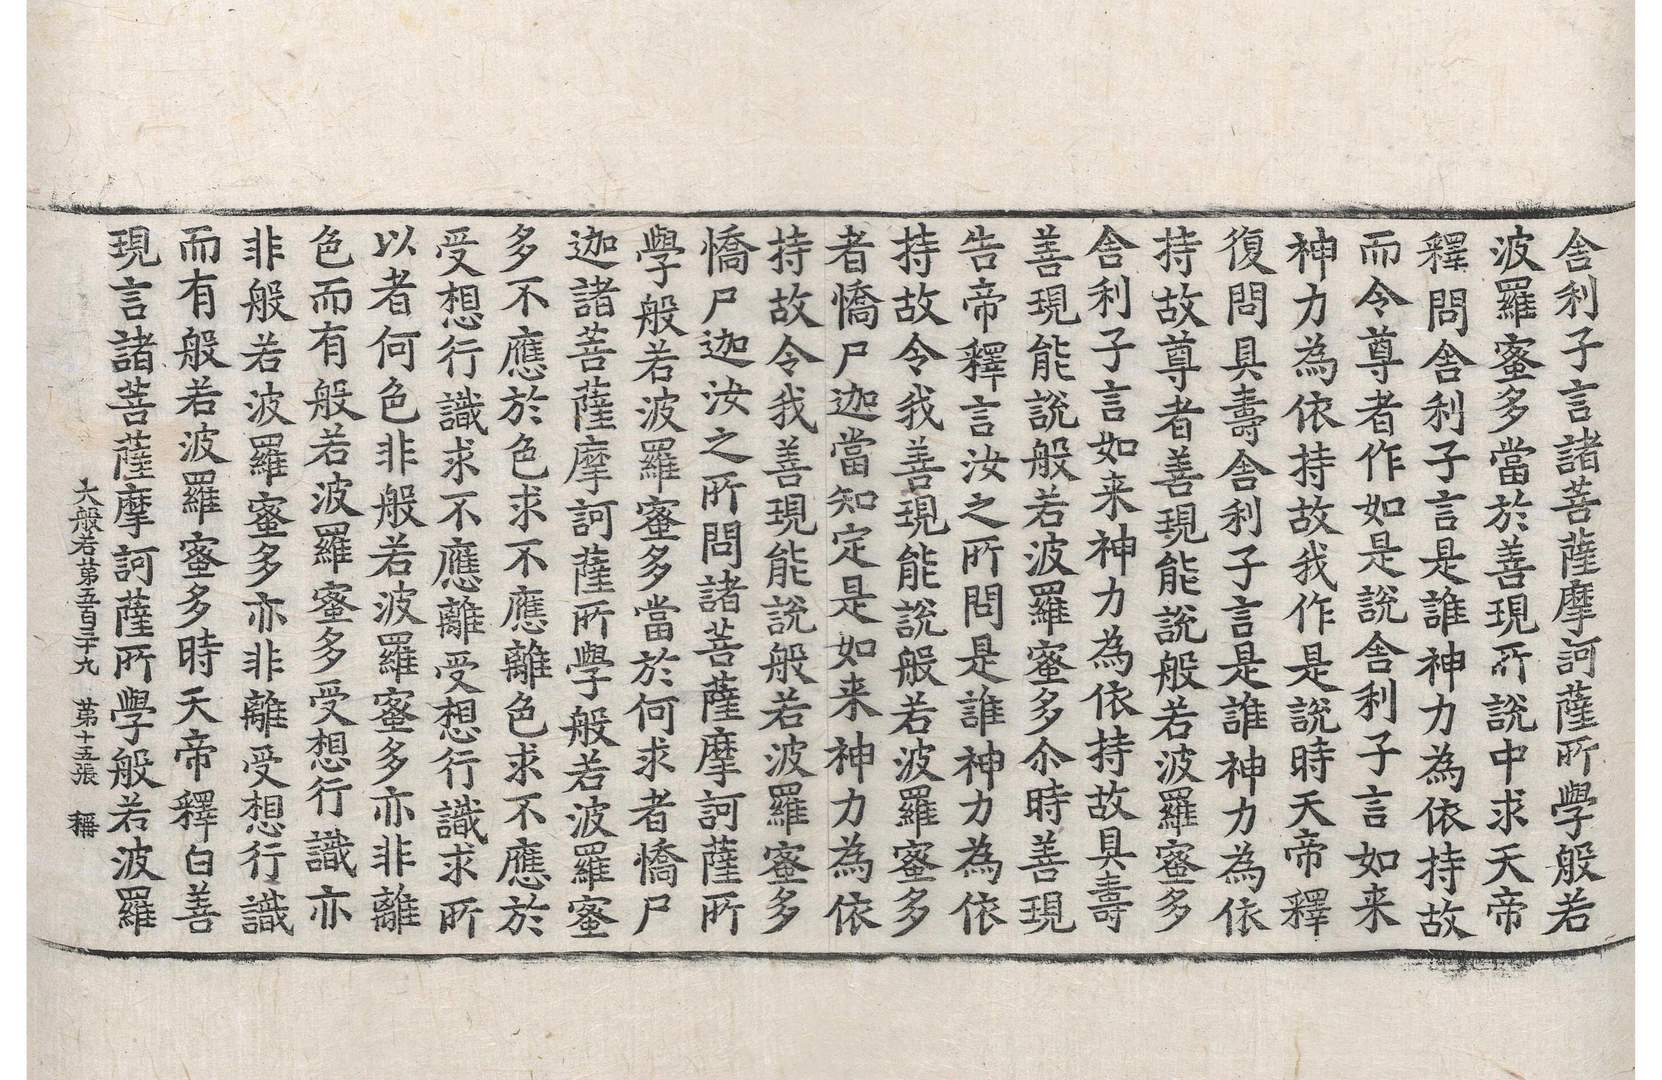 舍利子言諸菩薩摩訶薩所學般若
波羅蜜多當於善現所說中求天帝
釋問舍利子言是誰神力為依持故
而令尊者作如是說舍利子言如来
神力為依持故我作是說時天帝釋
復問具壽舍利子言是誰神力為依
持故尊者善現能說般若波羅蜜多
舍利子言如来神力為依持故具壽
善現能說般若波羅蜜多尒時善現
告帝釋言汝之所問是誰神力為依
持故令我善現能說般若波羅蜜多
者憍尸迦當知定是如来神力為依
持故令我善現能說般若波羅蜜多
憍尸迦汝之所問諸菩薩摩訶薩所
學般若波羅蜜多當於何求者憍尸
迦諸菩薩摩訶薩所學般若波羅蜜
多不應於色求不應離色求不應於
受想行識求不應離受想行識求所
以者何色非般若波羅蜜多亦非離
色而有般若波羅蜜多受想行識亦
非般若波羅蜜多亦非離受想行識
而有般若波羅蜜多時天帝釋白善
現言諸菩薩摩訶薩所學般若波羅
大般若第五百三十九　第十五張　稱